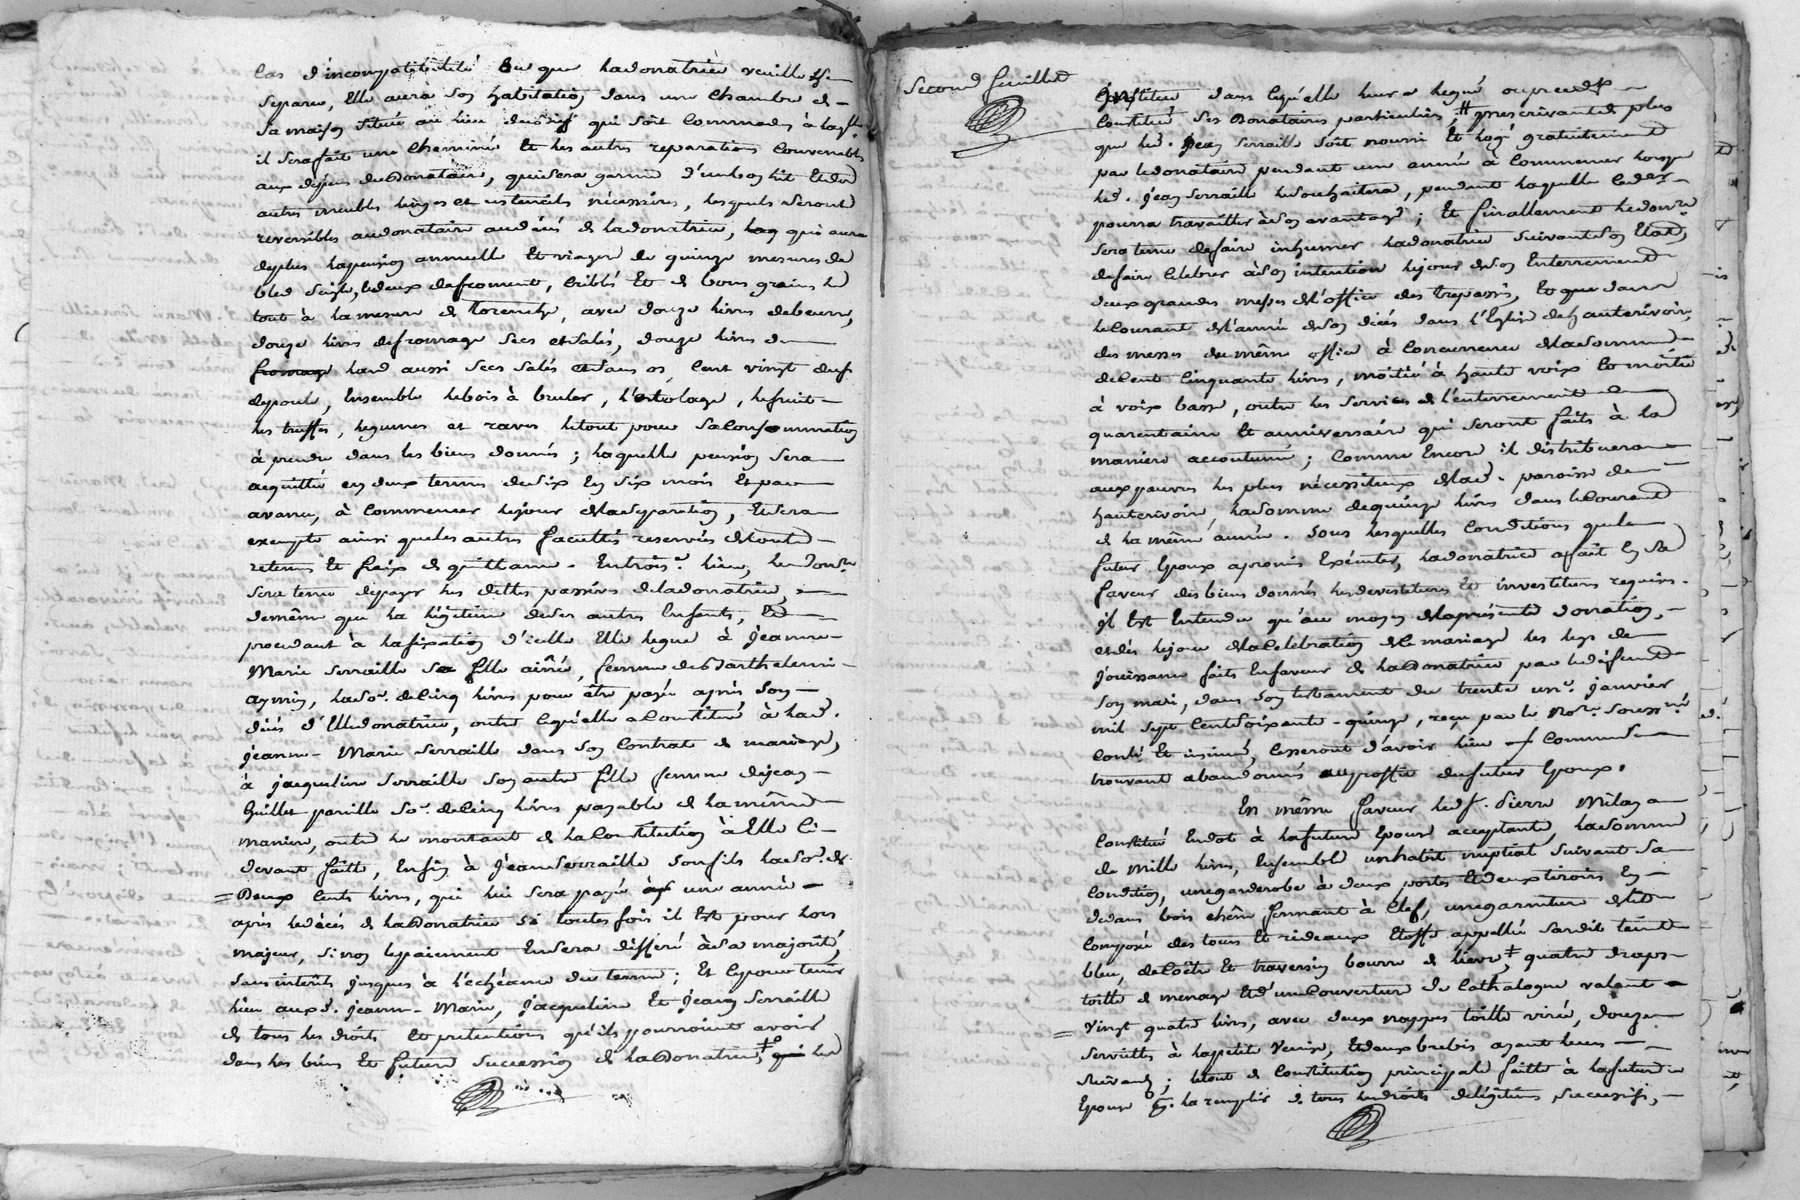 Cas d'incompatibilité ou que la donatrice veuille se
separer, Elle aura son habitation dans une Chambre de
sa maison située au lieu qui soit Commode, à laq.lle
il sera fait une Cheminée Et les autres reparations Convenables
aux depens du donataire, qui sera garnie d'un bon lit Et des
autres meubles linges et ustenciles nécessaires, lesquels seront
reversibles au donataire au décés de la donatrice, laq. qui aura
de plus la pension annuelle Et viagere de quinze mesures de
bled seigle, & deux de froment, criblés Et de bons grains le
tout à la mesure de , avec douze livres de beurre,
douze livres de fromage secs et salés, douze livres de
fromage lard aussi secs salés et sans os Cent vingt œufs
de poule, Ensemble le bois à bruler, l' , le fruit
les truffes, legumes et raves le tout pour sa Consommation
à prendre dans les biens donnés ; laquelle pension sera
acquittée en deux termes de six En six mois Et par
avance, à Commencer le jour de la separation, Et sera
exempte ainsi que les autres facultés reservées de toute
retenue Et fraix de quittance. En trois.e lieu, le don.re
sera tenu de payer les dettes passives de la donatrice,
de même que la légitime de ses autres Enfants, Et
procedant à la fixation d'icelle Elle legue à Jeanne
Marie Serraille sa fille ainée, femme de Barthelemi
, la so.e de Cinq livres pour être payée après son
décés d'Elle donatrice, outre ce qu'elle a Constitué à lad.
Jeanne-Marie Serraille dans son Contrat de mariage,
à Jacqueline Serraille son autre fille femme de Jean
Guillet pareille So.e de Cinq livres payable de la même
maniere, outre le montant de la Constitution à Elle Ci
devant faitte, Enfin à Jean Serraille son fils la so.e de
= Deux Cents livres, qui lui sera payée une année
après le décés de la Donatrice si toutes fois il Est pour lors
majeur, sinon le paiement En sera differé à sa majorité,
sans intérêts jusques à l'échéance du terme ; Et ce pour tenir
lieu auxd. Jeanne-Marie, Jacqueline Et Jean Serraille
de tous les droits Et pretentions qu'ils pourroient avoir
dans les biens Et future succession de la Donatrice,
Second feuillet
Constitué dans laquelle leur a legué
Constitué ses Donataires particuliers, prescrivant de plus
que led. Jean Serraille soit nourri Et logé gratuitement
par le donataire pendant une année à Commencer lorsque
led. Jean Serraille le souhaitera, pendant laquelle Ced.er
pourra travailler à son avantage ; Et finallement le don.re
sera tenu de faire inhumer la donatrice suivant son Etat,
de faire Celebrer à son intention le jour de son Enterrement
deux grandes messes de l'office des trepassés, Et que dans
le Courant de l'année de son décés dans l'Eglise de hauterivoire,
des messes du même office à Concurrence de la somme
de Cent Cinquante livres, moitié à haute voix Et moitié
à voix basse, outre les services de l'enterrement
quarantaine Et anniversaire qui seront faits à la
maniere accoutumée ; Comme Encore il distribuera
aux pauvres les plus nécessiteux de lad. paroisse de
hauterivoire, la somme de quinze livres dans le Courant
de la même année. Sous lesquelles Conditions que le
futur Epoux a promis Exécuter, la donatrice a fait En sa
faveur des biens donnés les devestitures & investitures requises.
Il Est Entendu qu'au moyen de la présente donation,
et dès le jour de la Celebration de mariage les legs de
jouissance faits En faveur de la donatrice par led. défunt
son mari, dans son testament du trente un.e janvier
mil sept Cent soixante-quinze, reçu par le No.re soussigné
Contr.é Et insinué, Cesseront d'avoir lieu Comme se
trouvant abandonnés au proffit du futur Epoux.
En même faveur led. S. Pierre Milan
Constitue En dot à la future Epouse acceptante, la somme
de mille livres, Ensemble un habit nuptial suivant sa
Condition, une garderobe à deux portes Et deux tiroirs En
dedans bois chêne fermant à Clef, une garniture de lit
Composée des tours Et rideaux Etoffe appellée Sardis teinte
bleu, de Coëtre Et traversin bourre de lievre, quatre draps
toille de menage Et d'une Couverture de Cathalogne valant
= Vingt quatre livres, avec deux nappes toille virée, douze
serviettes à la petite Venise, Et deux brebis ayant leurs
suivants ; le tout de Constitution principale faitte à la future
Epouse la remplir de tous les droits de légitime successifs,